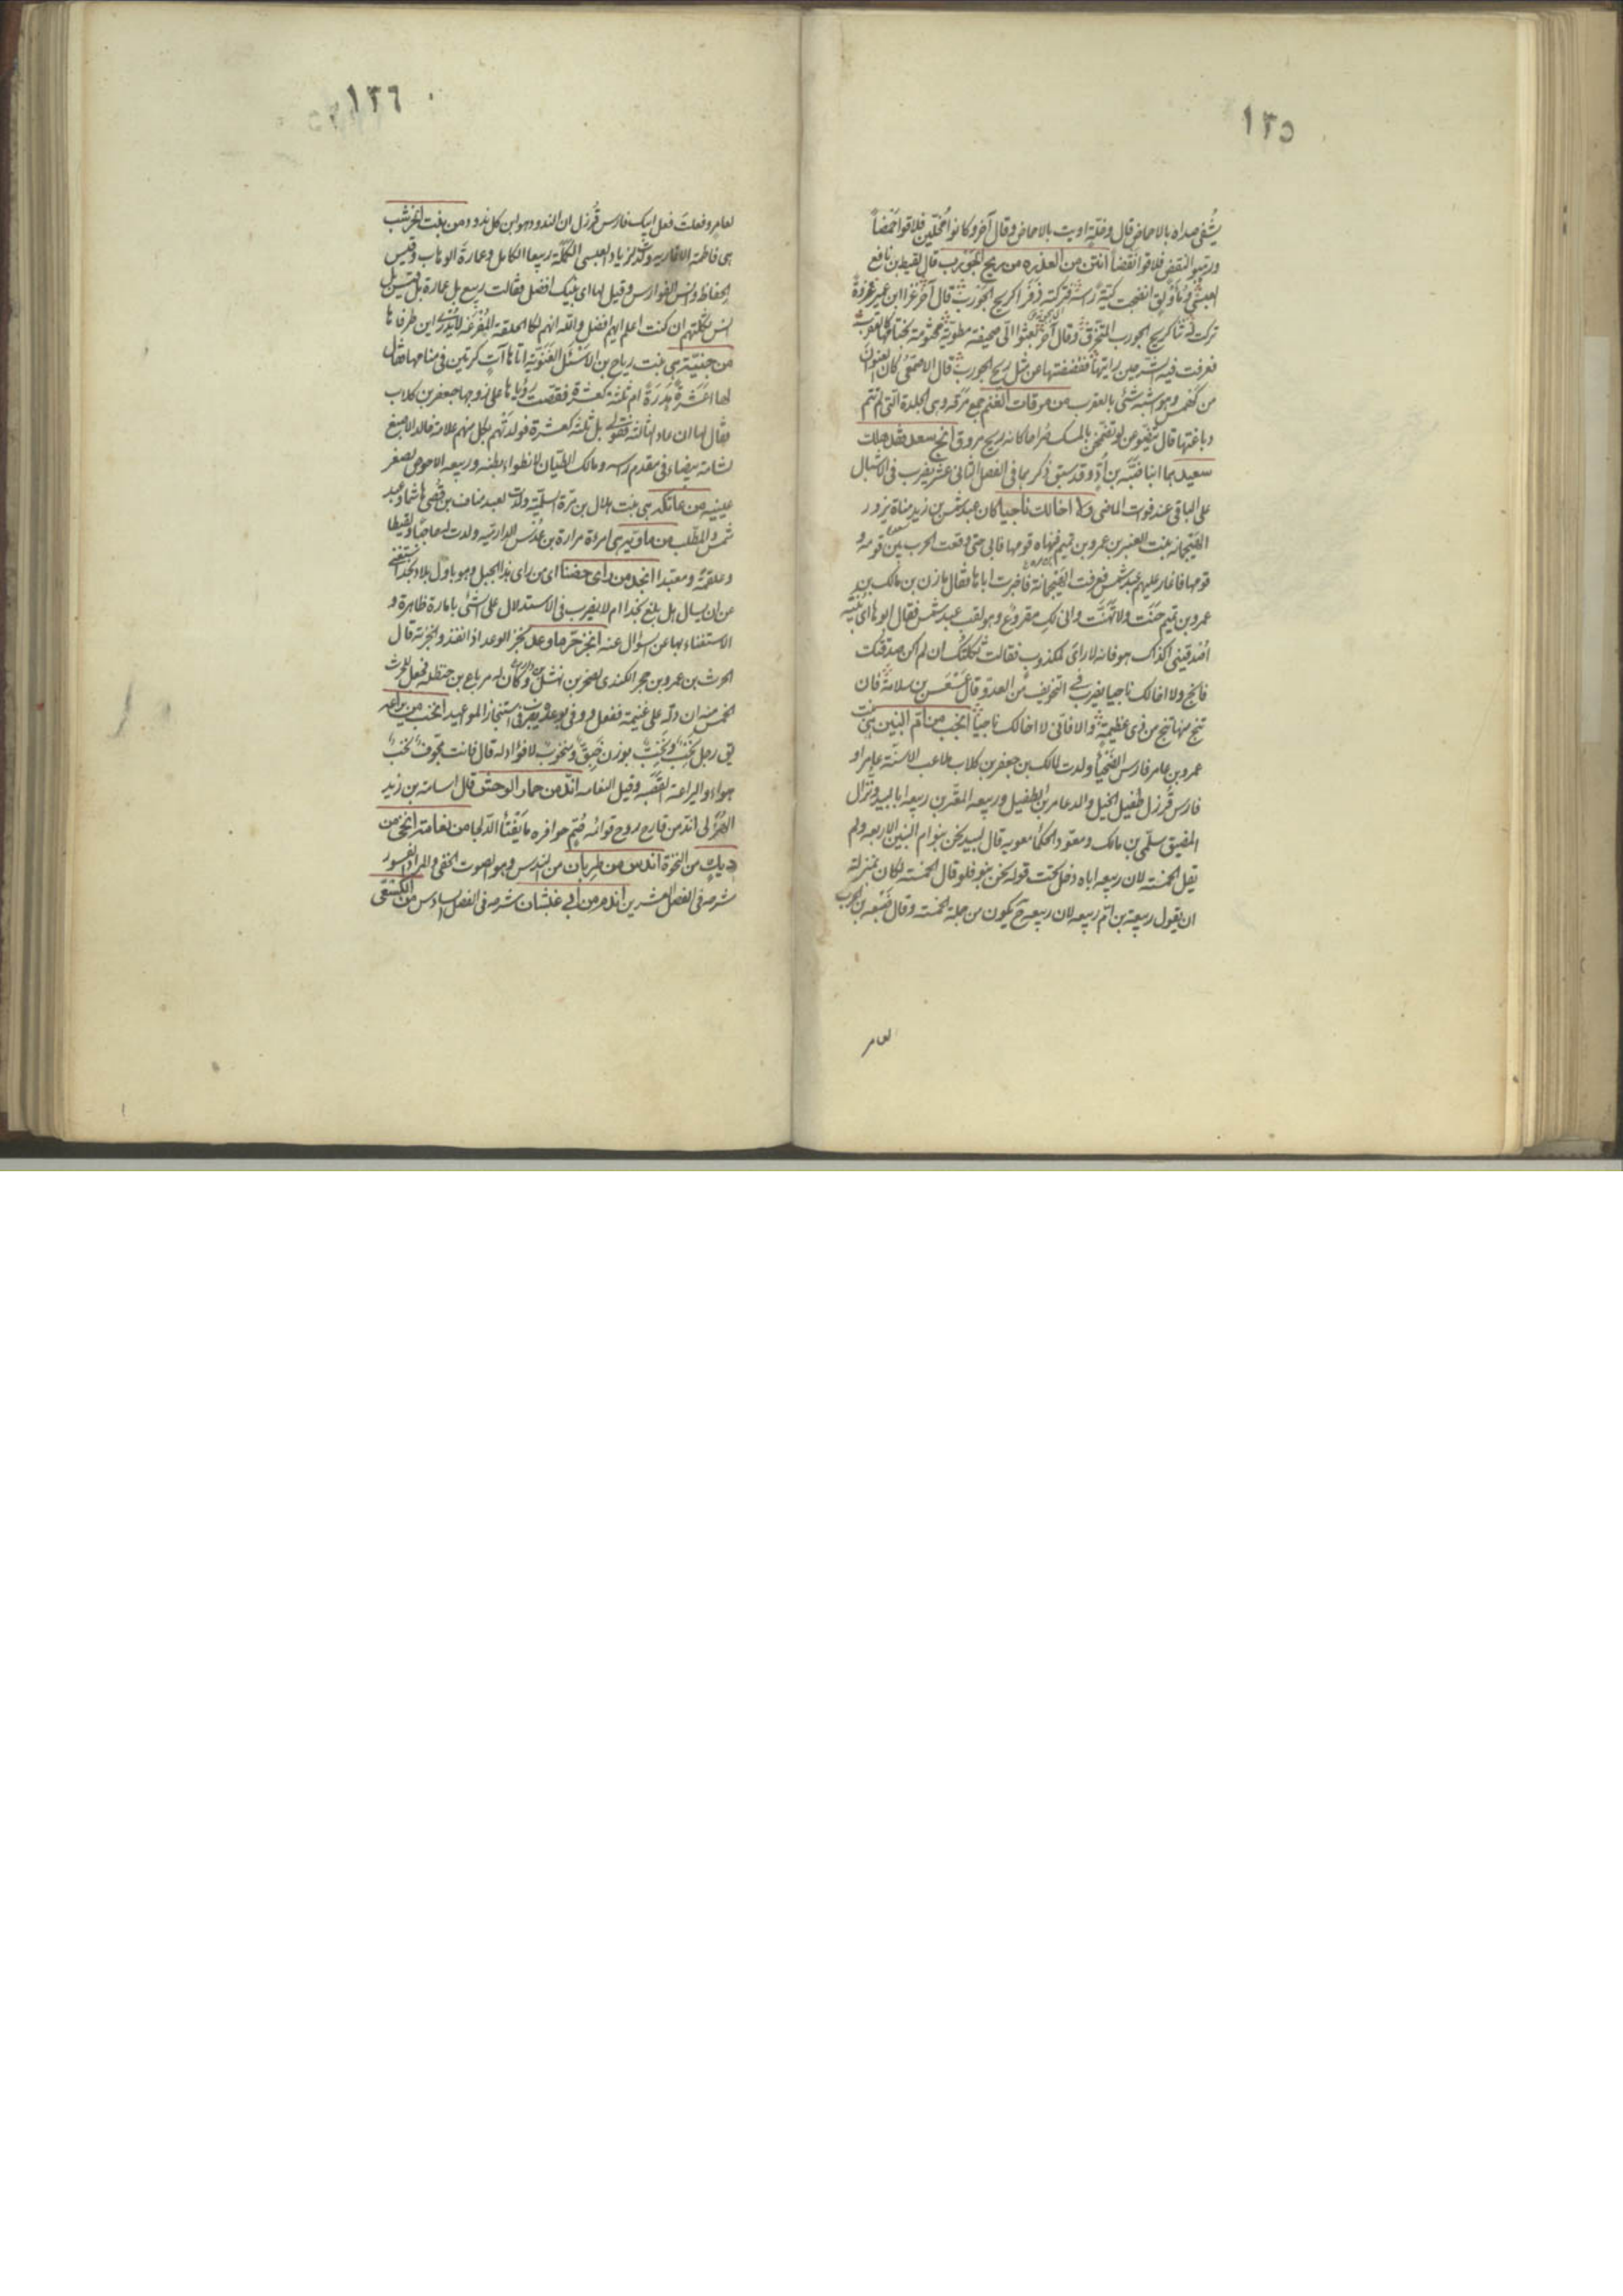 ١٣٥
يُشفى صداه بالاحماض قال وخلّة داويت بالاحماض وقال آخر وكانوا مخلّين فلاقوا حَمْضاً
النقض فلاقوا نقضاً انتن من العذره من ريح الجورب قال لقيط بن نافع
العبسى ومأولق انضجت كيّة رأسه فتركته ذَفَرا كريح الجورب قال آخر غزا ابن عمير غزوة
تركت له ثنا كريح الجورب المتخرّق وقال آخر بعثوا الىّ صحيفة مطويّة مختومة بختامها كالعقرب
فعرفت فيه الشرّ حين رايتها ففضضتها عن مثل ريح الجورب قال الاصمعى كان العنوان
من كهمس وهو اشبه شئ بالعقرب من مرقات الغنم جمع مرقه وهى الجلدة التى لم تتم
دباغتها قال يتضوّعن لو تضمّخن بالمسك ضراحا كانه ريح مروق انج سعد فقد هلك
سعيد هما ابنا ضبّة بن أدّ وقد سبق ذكرهما فى الفصل الثانى عشر يضرب فى الاقبال
على الباقى عند فوات الماضى ولا اخالك ناجيا كان عبد شمس بن زيد مناة يزور
الهيجمانه بنت العنبر بن عمرو بن تميم فنهاه قومها فابى حتى وقعت الحرب بين قومه و
قومها فاغار عليهم عبد شمس فعرفت الهيجمانة فاخبرت اباها فقال مازن بن مالك بن
عمرو بن تميم حنّت ولا تهنّت وانى لك مقروع وهو لقب عبد شمس فقال ابوها اى بنيّه
اصدقينى اكذاك هو فانه لا راى لمكذوب فقالت ثكلتك ان لم اكن صدقتك
فانج ولا اخالك ناجيا يضرب فى التخويف من العدو قال بن سلامة فان
تنج منها تنج من ذى عظيمة والا فانى لا اخالك ناجياً انجب من ام البنين هى بنت
عمرو بن عامر فارس الضحياء ولدت لمالك بن جعفر بن كلاب ملاعب الاسنّة عامرا و
فارس قُرزل طفيل الخيل والد عامر بن الطفيل وربيعه المقترين ربيعه ابا لبيد ونزّال
المضيق سلمى بن مالك ومعود الحكماء معويه قال لبيد نحن بنو ام البنين الاربعه ولم
يقل الخمسة لان ربيعه اباه دخل تحت قوله نحن بنو فلو قال الخمسة لكان بمنزلة
ان يقول ربيعة بن ام ربيعه لان ربيعه ح يكون من جملة الخمسة وقال
لعامر
١٣٦
لعامر وفعلت فعل ابيك فارس قُرزل ان الندود هو ابن كل ندود من بنت الخرشب
هى فاطمه الانماريه ولدت لزياد العبسى الكملة ربيعا الكامل وعمارة الوهاب وقيس
الحفاظ وانس الفوارس وقيل لها اى بنيك افضل فقالت ربيع بل عمارة بل قيس بل
انس ثكلتهم ان كنت اعلم ايهم افضل والله انهم لكالحلقة المفرغة لا يدرى اين طرفاها
من خبيئة هى بنت رياح بن الاشل الغنوية اتاها آت كرتين فى منامها فقال
لها اعشرة هدرة ام ثلثة كعشرة فقصّت رؤياها على زوجها جعفر بن كلاب
فقال لها ان عاد الثالثة فقولى بل ثلثة كعشرة فولدتهم بكل منهم علامة خالد الاصبغ
لشامة بيضاء فى مقدم راسه ومالك الطيّان لانطواء بطنه وربيعه الاحوص لصغر
عينيه من عاتكه هى بنت هلال بن مرّة السلمية ولدت لعبد مناف بن قصى هاشما وعبد
شمس والمطلب من ماويه هى امرءة زرارة بن عدس الدارميه ولدت له حاجبا ولقيطا
وعلقمة ومعبدا انجد من راى حضنا اى من راى هذا الجبل وهو باوّل بلاد نجد استغنى
عن ان يسال هل بلغ نجدا ام لا يضرب فى الاستدلال على الشئ بامارة ظاهرة و
الاستغناء بها عن السؤال عنه انجز حرّ ما وعد نجز الوعد اذا نفذ وانجزته قال
الحرث بن عمرو بن حجر الكندى لصخر بن نهشل بن دارم وكان له مرباع بن حنظله فجعل للحرث
الخمس منه ان دلّه على غنيمة ففعل ووفى بوعده يضرب فى استنجاز المواعيد انخب من يراعه
يق رجل نخب ونخيب بوزن ومنخوب لا فؤاد له قال فانت مجوّف نخب
هواء واليراعة القصبه وقيل النعامه اندّ من حمار الوحش قال اسامة بن زيد
الهذلى اندّ من قارح روح قوائمه صُتم حوافره ما يفتا الدّلجا من نعامته انخى من
ديك من النخوة اندس من ظربان من الندس وهو الصوت الخفى والمراد الفسو
شرحه فى الفصل العشرين اندم من ابى غبشان شرحه فى الفصل السادس من الكسعى